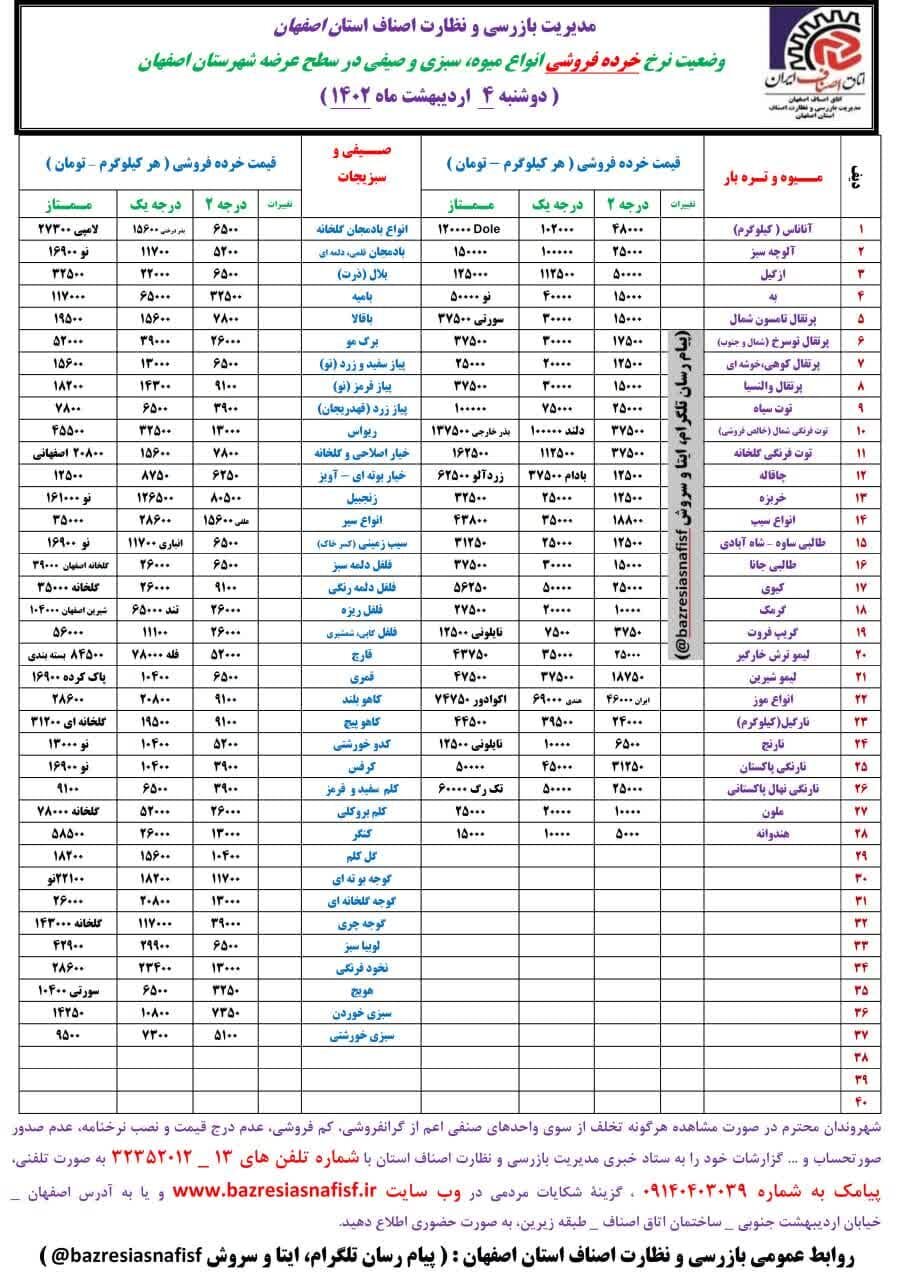 مدیریت بازرسی و نظارت اصناف استان اصفهان
وضعیت نرخ خرده فروشی انواع میوه، سبزی و صیفی در سطح عرضه شهرستان اصفهان
( دوشنبه ۴ اردیبهشت ماه ۱۴۰۲ )
اتاق اصناف ایران
اتاق اصناف اصفهان
مدیریت بازرسی و نظارت اصناف
استان اصفهان
دیف میوه و تره بار قیمت خرده فروشی ( هر کیلوگرم – تومان ) صیفی و سبزیجات قیمت خرده فروشی ( هر کیلوگرم - تومان )
تغییرات درجه ۲ درجه یک ممتاز تغییرات درجه ۲ درجه یک ممتاز
۱ آناناس ( کیلوگرم) ۴۸۰۰۰ ۱۰۲۰۰۰ Dole ۱۲۰۰۰۰ انواع بادمجان گلخانه ۶۵۰۰ بندرختی ۱۵۶۰۰ لامپی ۲۷۳۰۰
۲ آلوچه سبز ۲۵۰۰۰ ۱۰۰۰۰۰ ۱۵۰۰۰۰ بادمجان قلمی، دلمه ای ۵۲۰۰ ۱۱۷۰۰ نو ۱۶۹۰۰
۳ ازگیل ۵۰۰۰۰ ۱۱۲۵۰۰ ۱۲۵۰۰۰ بلال (ذرت) ۶۵۰۰ ۲۲۰۰۰ ۳۲۵۰۰
۴ به ۱۵۰۰۰ ۴۰۰۰۰ نو ۵۰۰۰۰ بامیه ۳۲۵۰۰ ۶۵۰۰۰ ۱۱۷۰۰۰
۵ پرتقال تامسون شمال ۱۵۰۰۰ ۳۰۰۰۰ سورتی ۳۷۵۰۰ باقالا ۷۸۰۰ ۱۵۶۰۰ ۱۹۵۰۰
۶ پرتقال توسرخ (شمال و جنوب) ۱۷۵۰۰ ۳۰۰۰۰ ۳۷۵۰۰ برگ مو ۲۶۰۰۰ ۳۹۰۰۰ ۵۲۰۰۰
۷ پرتقال کوهی،خوشه ای ۱۲۵۰۰ ۲۰۰۰۰ ۲۵۰۰۰ پیاز سفید و زرد (نو) ۶۵۰۰ ۱۳۰۰۰ ۱۵۶۰۰
۸ پرتقال والنسیا ۱۵۰۰۰ ۳۰۰۰۰ ۳۷۵۰۰ پیاز قرمز (نو) ۹۱۰۰ ۱۴۳۰۰ ۱۸۲۰۰
۹ توت سیاه ۲۵۰۰۰ ۷۵۰۰۰ ۱۰۰۰۰۰ پیاز زرد (قهدریجان) ۳۹۰۰ ۶۵۰۰ ۷۸۰۰
۱۰ توت فرنگی شمال (خالص فروشی) ۳۷۵۰۰ دلند ۱۰۰۰۰۰ بذر خارجی ۱۳۷۵۰۰ ریواس ۱۳۰۰۰ ۳۲۵۰۰ ۴۵۵۰۰
۱۱ توت فرنگی گلخانه ۳۷۵۰۰ ۱۱۲۵۰۰ ۱۶۲۵۰۰ خیار اصلاحی و گلخانه ۷۸۰۰ ۱۵۶۰۰ ۲۰۸۰۰ اصفهانی
۱۲ چاقاله ۱۲۵۰۰ بادام ۳۷۵۰۰ زردآلو ۶۲۵۰۰ خیار بوته ای – آویز ۶۲۵۰ ۸۷۵۰ ۱۲۵۰۰
۱۳ خربزه ۱۲۵۰۰ ۲۵۰۰۰ ۳۲۵۰۰ زنجبیل ۸۰۵۰۰ ۱۲۶۵۰۰ نو ۱۶۱۰۰۰
۱۴ انواع سیب ۱۸۸۰۰ ۳۵۰۰۰ ۴۳۸۰۰ انواع سیر علفی ۱۵۶۰۰ ۲۸۶۰۰ ۳۵۰۰۰
۱۵ طالبی ساوه - شاه آبادی ۱۲۵۰۰ ۲۵۰۰۰ ۳۱۲۵۰ سیب زمینی (کسر خاک) ۶۵۰۰ انباری ۱۱۷۰۰ نو ۱۶۹۰۰
۱۶ طالبی جانا ۱۵۰۰۰ ۳۰۰۰۰ ۳۷۵۰۰ فلفل دلمه سبز ۶۵۰۰ ۲۶۰۰۰ گلخانه اصفهان ۳۹۰۰۰
۱۷ کیوی ۲۵۰۰۰ ۵۰۰۰۰ ۵۶۲۵۰ فلفل دلمه رنگی ۹۱۰۰ ۲۶۰۰۰ گلخانه ۳۵۰۰۰
۱۸ گرمک ۱۰۰۰۰ ۲۰۰۰۰ ۲۷۵۰۰ فلفل ریزه ۲۶۰۰۰ تند ۶۵۰۰۰ شیرین اصفهان ۱۰۴۰۰۰
۱۹ گریپ فروت ۳۷۵۰ ۷۵۰۰ نایلونی ۱۲۵۰۰ فلفل کاپی، شمشیری ۲۶۰۰۰ ۱۱۱۰۰ ۵۶۰۰۰
۲۰ لیمو ترش خارگیر ۲۵۰۰۰ ۳۵۰۰۰ ۴۳۷۵۰ قارچ ۵۲۰۰۰ فله ۷۸۰۰۰ ۸۴۵۰۰ بسته بندی
۲۱ لیمو شیرین ۱۸۷۵۰ ۳۷۵۰۰ ۴۷۵۰۰ قمری ۶۵۰۰ ۱۰۴۰۰ پاک کرده ۱۶۹۰۰
۲۲ انواع موز ایران ۴۶۰۰۰ هندی ۶۹۰۰۰ اکوادور ۷۴۷۵۰ کاهو بلند ۹۱۰۰ ۲۰۸۰۰ ۲۸۶۰۰
۲۳ نارگیل(کیلوگرم) ۲۴۰۰۰ ۳۹۵۰۰ ۴۴۵۰۰ کاهو پیچ ۹۱۰۰ ۱۹۵۰۰ گلخانه ای ۳۱۲۰۰
۲۴ نارنج ۶۵۰۰ ۱۰۰۰۰ نایلونی ۱۲۵۰۰ کدو خورشتی ۵۲۰۰ ۱۰۴۰۰ نو ۱۳۰۰۰
۲۵ نارنگی پاکستان ۳۱۲۵۰ ۴۵۰۰۰ ۵۰۰۰۰ کرفس ۳۹۰۰ ۱۰۴۰۰ نو ۱۶۹۰۰
۲۶ نارنگی نهال پاکستانی ۲۵۰۰۰ ۵۰۰۰۰ تک رگ ۶۰۰۰۰ کلم سفید و قرمز ۳۹۰۰ ۶۵۰۰ ۹۱۰۰
۲۷ ملون ۱۰۰۰۰ ۲۰۰۰۰ ۲۵۰۰۰ کلم بروکلی ۲۶۰۰۰ ۵۲۰۰۰ گلخانه ۷۸۰۰۰
۲۸ هندوانه ۵۰۰۰ ۱۰۰۰۰ ۱۵۰۰۰ کنگر ۱۳۰۰۰ ۲۶۰۰۰ ۵۸۵۰۰
۲۹ گل کلم ۱۰۴۰۰ ۱۵۶۰۰ ۱۸۲۰۰
۳۰ گوجه بوته ای ۱۱۷۰۰ ۱۸۲۰۰ ۲۲۱۰۰نو
۳۱ گوجه گلخانه ای ۱۳۰۰۰ ۲۰۸۰۰ ۲۶۰۰۰
۳۲ گوجه چری ۳۹۰۰۰ ۱۱۷۰۰۰ گلخانه ۱۴۳۰۰۰
۳۳ لوبیا سبز ۶۵۰۰ ۲۹۹۰۰ ۴۲۹۰۰
۳۴ نخود فرنگی ۱۳۰۰۰ ۲۳۴۰۰ ۲۸۶۰۰
۳۵ هویج ۳۲۵۰ ۶۵۰۰ سورتی ۱۰۴۰۰
۳۶ سبزی خوردن ۷۳۵۰ ۱۰۸۰۰ ۱۴۲۵۰
۳۷ سبزی خورشتی ۵۱۰۰ ۷۳۰۰ ۹۵۰۰
۳۸
۳۹
۴۰
(پیام رسان تلگرام، ایتا و سروش bazresiasnafisf@)
شهروندان محترم در صورت مشاهده هرگونه تخلف از سوی واحدهای صنفی اعم از گرانفروشی، کم فروشی، عدم درج قیمت و نصب نرخنامه، عدم صدور
صورتحساب و ... گزارشات خود را به ستاد خبری مدیریت بازرسی و نظارت اصناف استان با شماره تلفن های ۱۳ _ ۳۲۳۵۲۰۱۲ به صورت تلفنی،
پیامک به شماره ۰۹۱۴۰۴۰۳۰۳۹ ، گزینهٔ شکایات مردمی در وب سایت www.bazresiasnafisf.ir و یا به آدرس اصفهان _
خیابان اردیبهشت جنوبی _ ساختمان اتاق اصناف _ طبقه زیرین، به صورت حضوری اطلاع دهید.
روابط عمومی بازرسی و نظارت اصناف استان اصفهان : ( پیام رسان تلگرام، ایتا و سروش bazresiasnafisf@ )